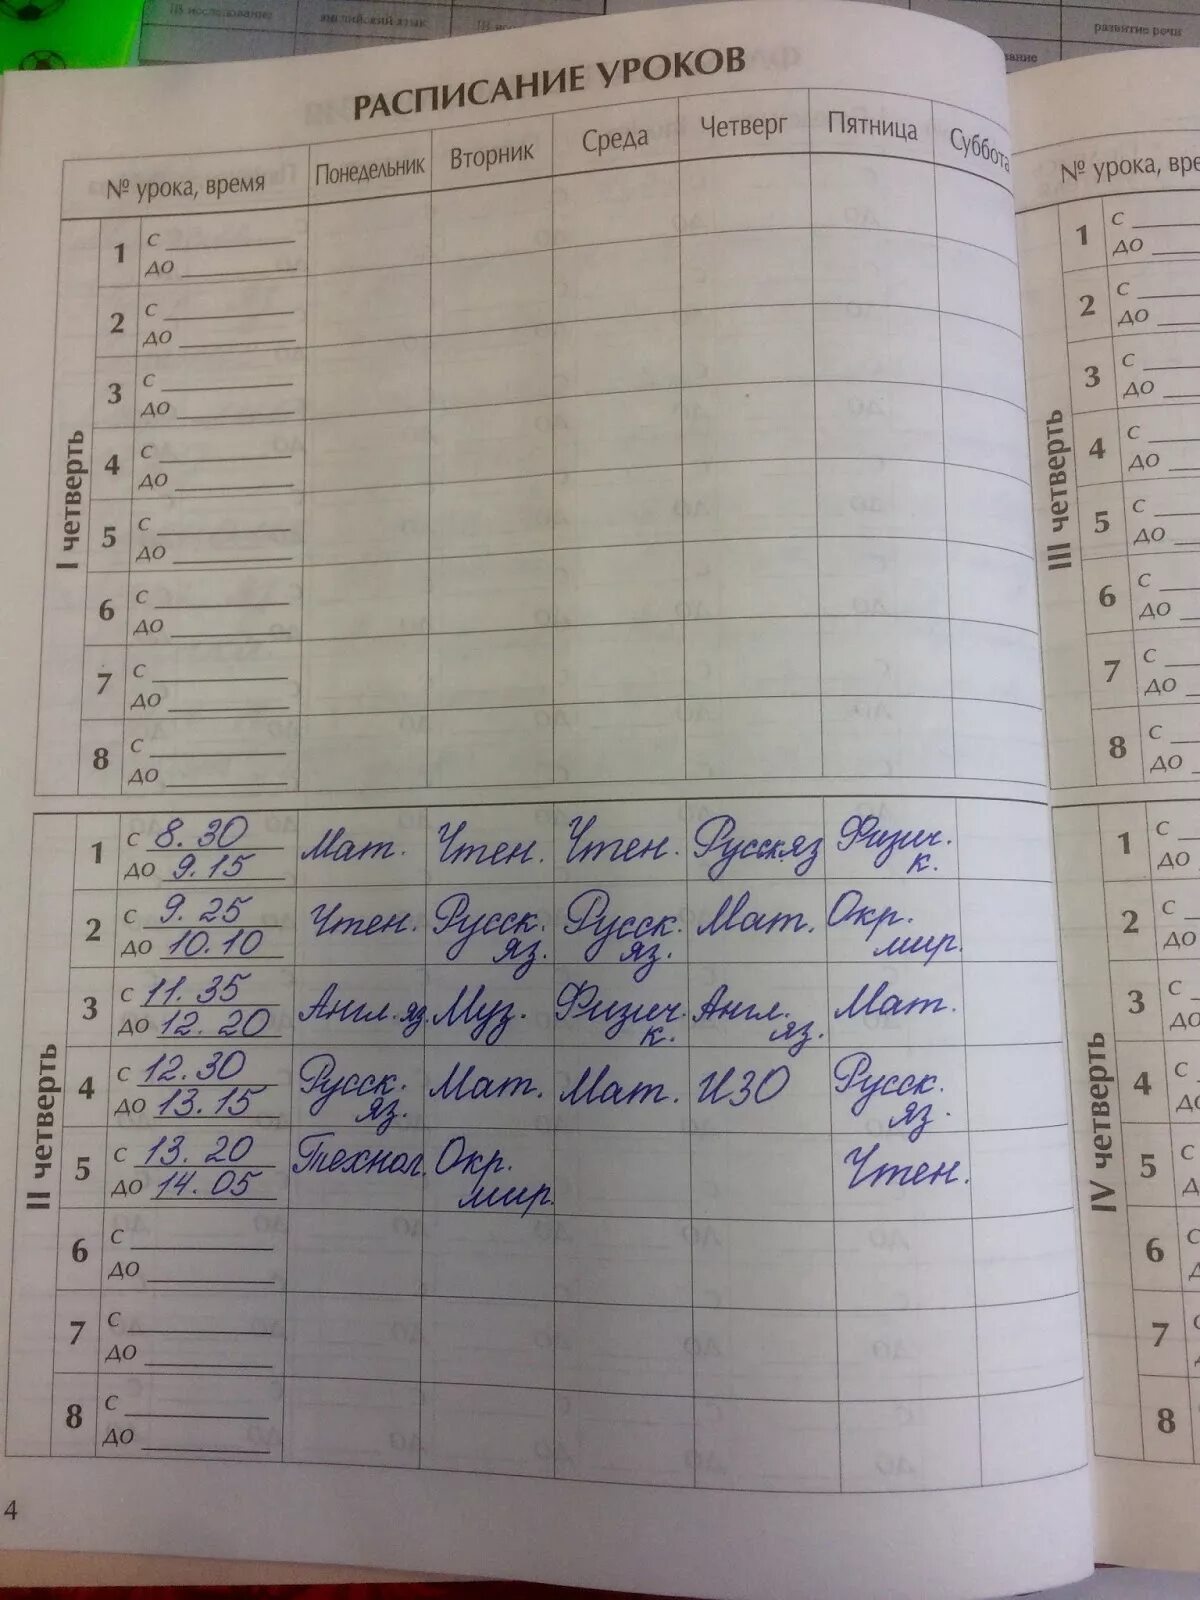 III исследование английский язык III
развитие речи
РАСПИСАНИЕ УРОКОВ
№ урока, время Понедельник Вторник Среда Четверг Пятница Суббота
I четверть
1 с
до
2 с
до
3 с
до
4 с
до
5 с
до
6 с
до
7 с
до
8 с
до
II четверть
1 с 8.30 Мат. Чтен. Чтен. Русск яз Физич.
до 9.15 к.
2 с 9.25 Чтен. Русск. Русск. Мат. Окр.
до 10.10 яз. яз. мир.
3 с 11.35 Англ. яз. Муз. Физич. Англ. Мат.
до 12.20 к. яз.
4 с 12.30 Русск. Мат. Мат. ИЗО Русск.
до 13.15 яз. яз.
5 с 13.20 Технол. Окр. Чтен.
до 14.05 мир.
6 с
до
7 с
до
8 с
до
4
№ урока, вре
III четверть
1 с
до
2 с
до
3 с
до
4 с
до
5 с
до
6 с
до
7 с
до
8 с
до
IV четверть
1 с
до
2 с
до
3 с
до
4 с
до
5 с
до
6 с
до
7 с
до
8 с
до